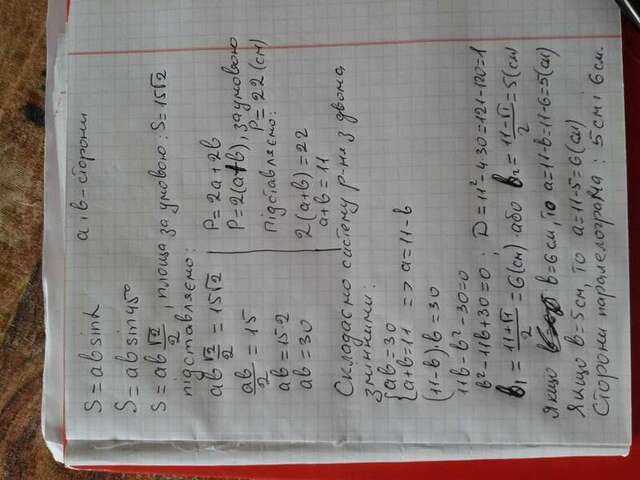 S = ab sin α a і b - сторони
S = ab sin 45°
S = ab √2/2, площа за умовою: S = 15√2
підставляємо:
ab √2/2 = 15√2
ab/2 = 15
ab = 15·2
ab = 30
P = 2a + 2b
P = 2(a + b), за умовою
P = 22 (см)
підставляємо:
2(a+b) = 22
a+b = 11
Складаємо систему р-ня з двома
змінними:
{ab = 30
{a+b = 11 => a = 11 - b
(11-b)b = 30
11b - b² - 30 = 0
b² - 11b + 30 = 0; D = 11² - 4·30 = 121 - 120 = 1
b₁ = (11+√1)/2 = 6 (см) або b₂ = (11-√1)/2 = 5 (см)
Якщо b = 6 см, то a = 11 - b = 11 - 6 = 5 (см)
Якщо b = 5 см, то a = 11 - 5 = 6 (см)
Сторони паралелограма: 5 см і 6 см.